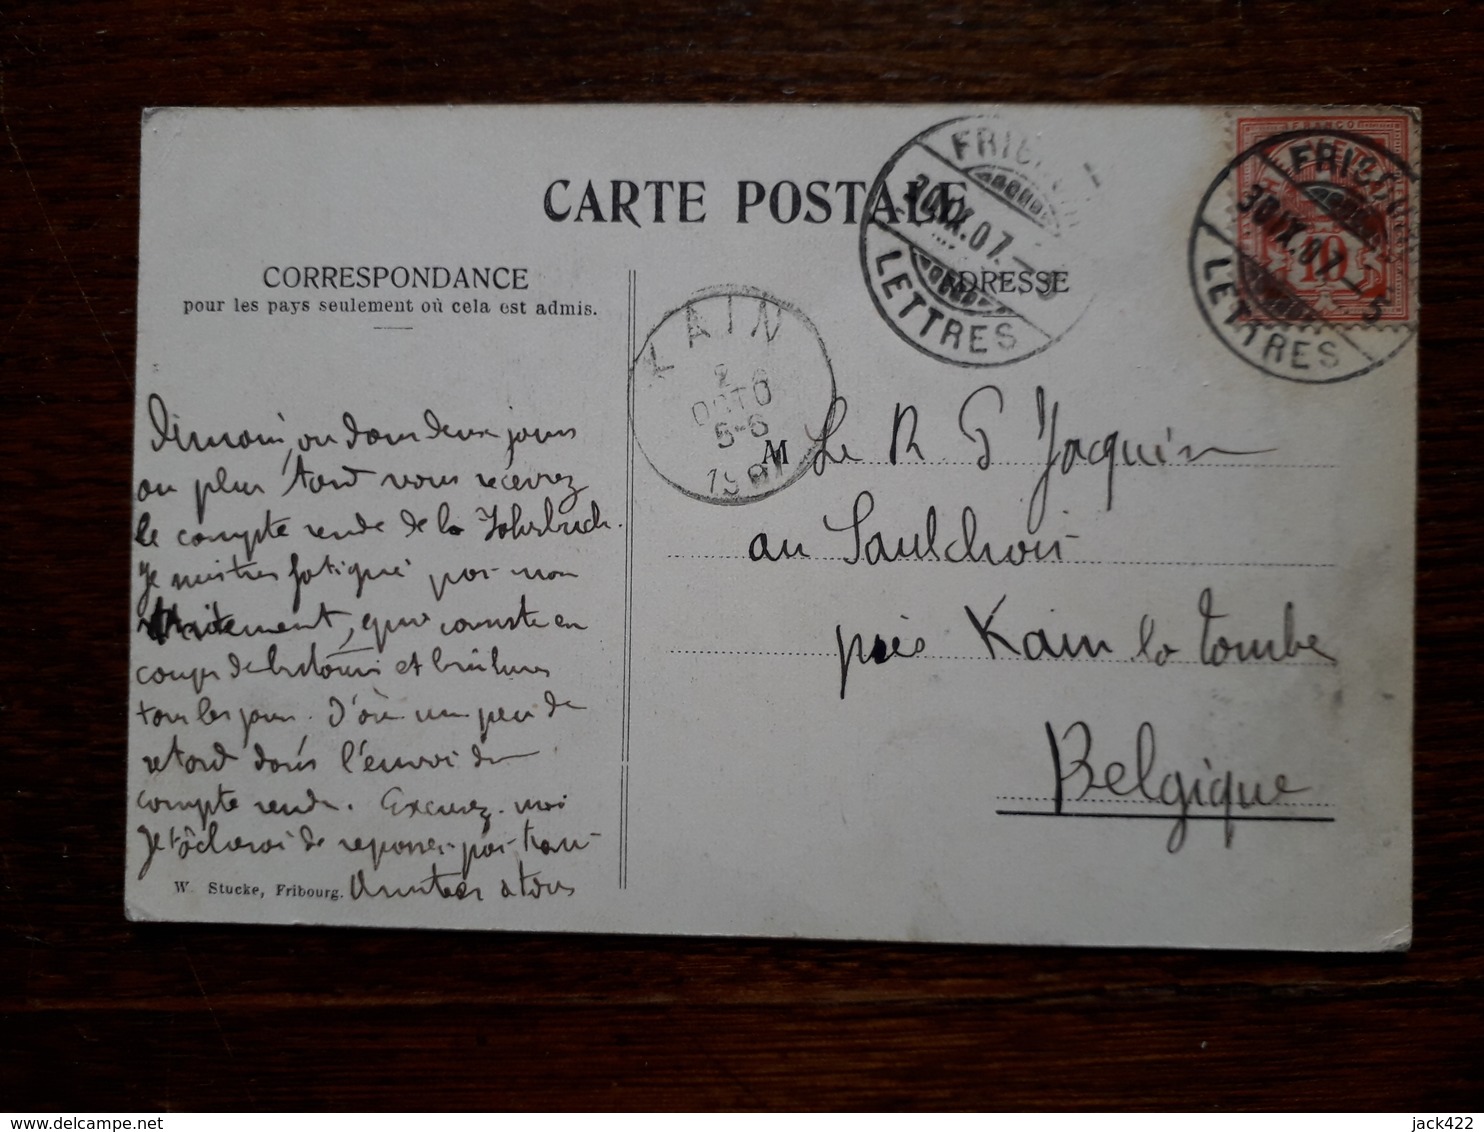 CARTE POSTALE
CORRESPONDANCE
pour les pays seulement où cela est admis.
ADRESSE
FRIBOURG
30.IX.07.-5
LETTRES
FRIBOURG
30.IX.07.-5
LETTRES
FRANCO
10
KAIN
2
OCTO
5-6
1907
M Le R P Jacquin
au Saulchoir
près Kain la Tombe
Belgique
ou dans deux jours
ou plus tard vous recevrez
le compte rendu de la
Je suis très fatigué par mon
traitement, qui consiste en
coups de bistouris et brûlures
tous les jours. D'où un peu de
retard dans l'envoi du
compte rendu. Excusez-moi
Je tâcherai de
W. Stucke, Fribourg.
jack422